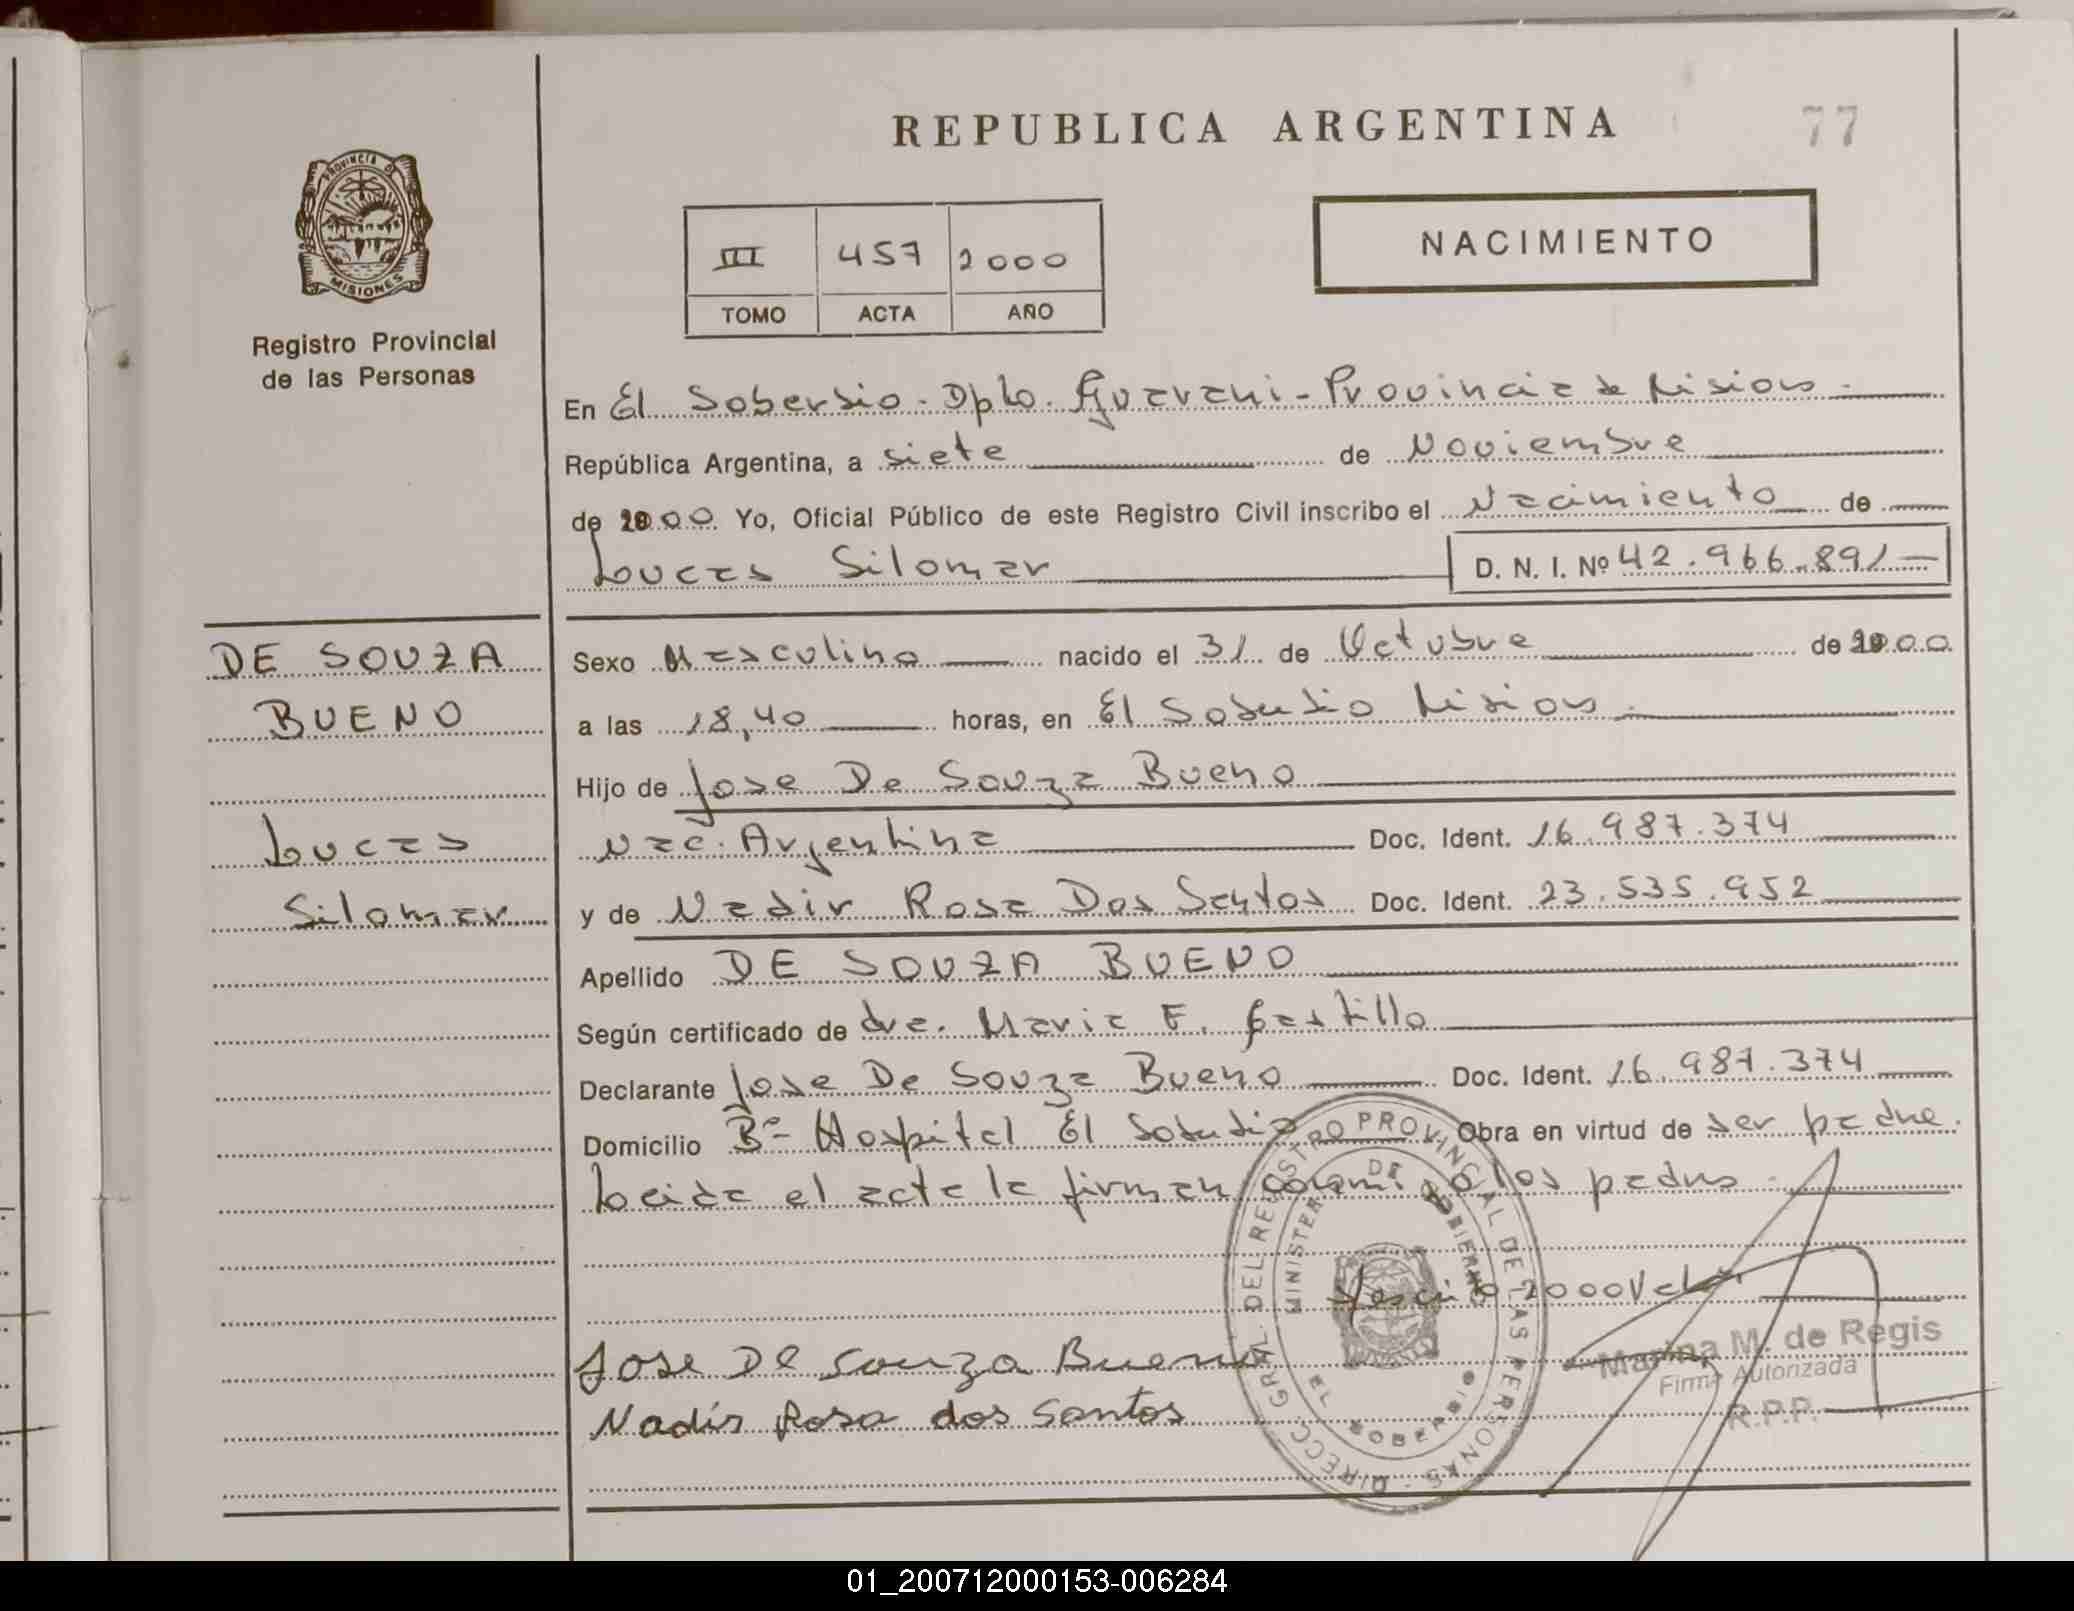 REPUBLICA ARGENTINA
77
PROVINCIA D MISIONES
Registro Provincial
de las Personas
III 457 2000
TOMO ACTA AÑO
NACIMIENTO
En El Soberbio - Dpto. Guarani - Provincia de Misiones.
República Argentina, a siete de Noviembre
de 2000 Yo, Oficial Público de este Registro Civil inscribo el Nacimiento de
Loucas Silomar D. N. I. Nº 42.966.891
DE SOUZA
BUENO
Loucas
Silomar
Sexo Masculino nacido el 31 de Octubre de 2000
a las 18,40 horas, en El Soberbio Misiones.
Hijo de Jose De Souza Bueno
Nac. Argentina Doc. Ident. 16.987.374
y de Nadir Rosa Dos Santos Doc. Ident. 23.535.952
Apellido DE SOUZA BUENO
Según certificado de dra. Maria E. Castillo
Declarante Jose De Souza Bueno Doc. Ident. 16.987.374
Domicilio Bº- Hospital El Soberbio Obra en virtud de ser padre.
Leida el acta la firman conmigo los padres.
2000 Vale
Jose De Souza Bueno
Nadir Rosa dos Santos
DIRECC. GRAL. DEL REGISTRO PROVINCIAL DE LAS PERSONAS
MINISTERIO DE GOBIERNO
EL SOBERBIO
Marina M. de Regis
Firma Autorizada
R.P.P.
01_200712000153-006284